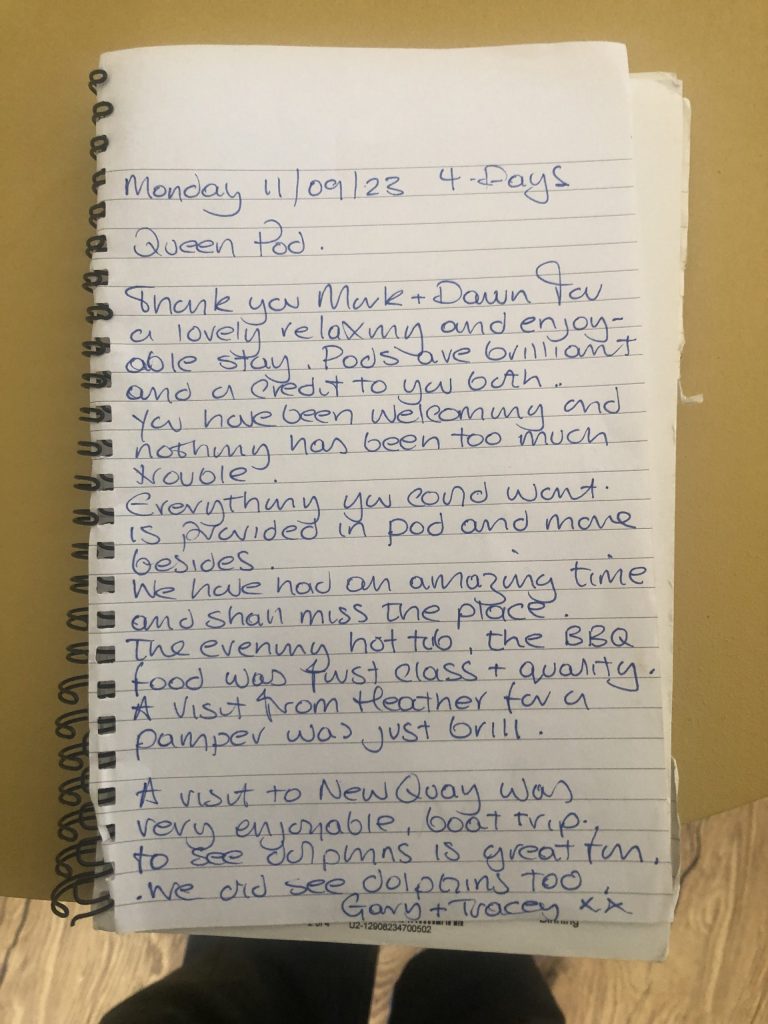 Monday 11/09/23 4-Days
Queen Pod.
Thank you Mark + Dawn for
a lovely relaxing and enjoy-
able stay. Pods are brilliant
and a credit to you both.
You have been welcoming and
nothing has been too much
trouble.
Everything you could want.
is provided in pod and more
besides.
We have had an amazing time
and shall miss the place.
The evening hot tub, the BBQ
food was first class + quality.
A visit from Heather for a
pamper was just brill.
A visit to New Quay was
very enjoyable, boat trip.,
to see dolphins is great fun.
.We did see dolphins too.
Gary + Tracey xx
U2-12908234700502